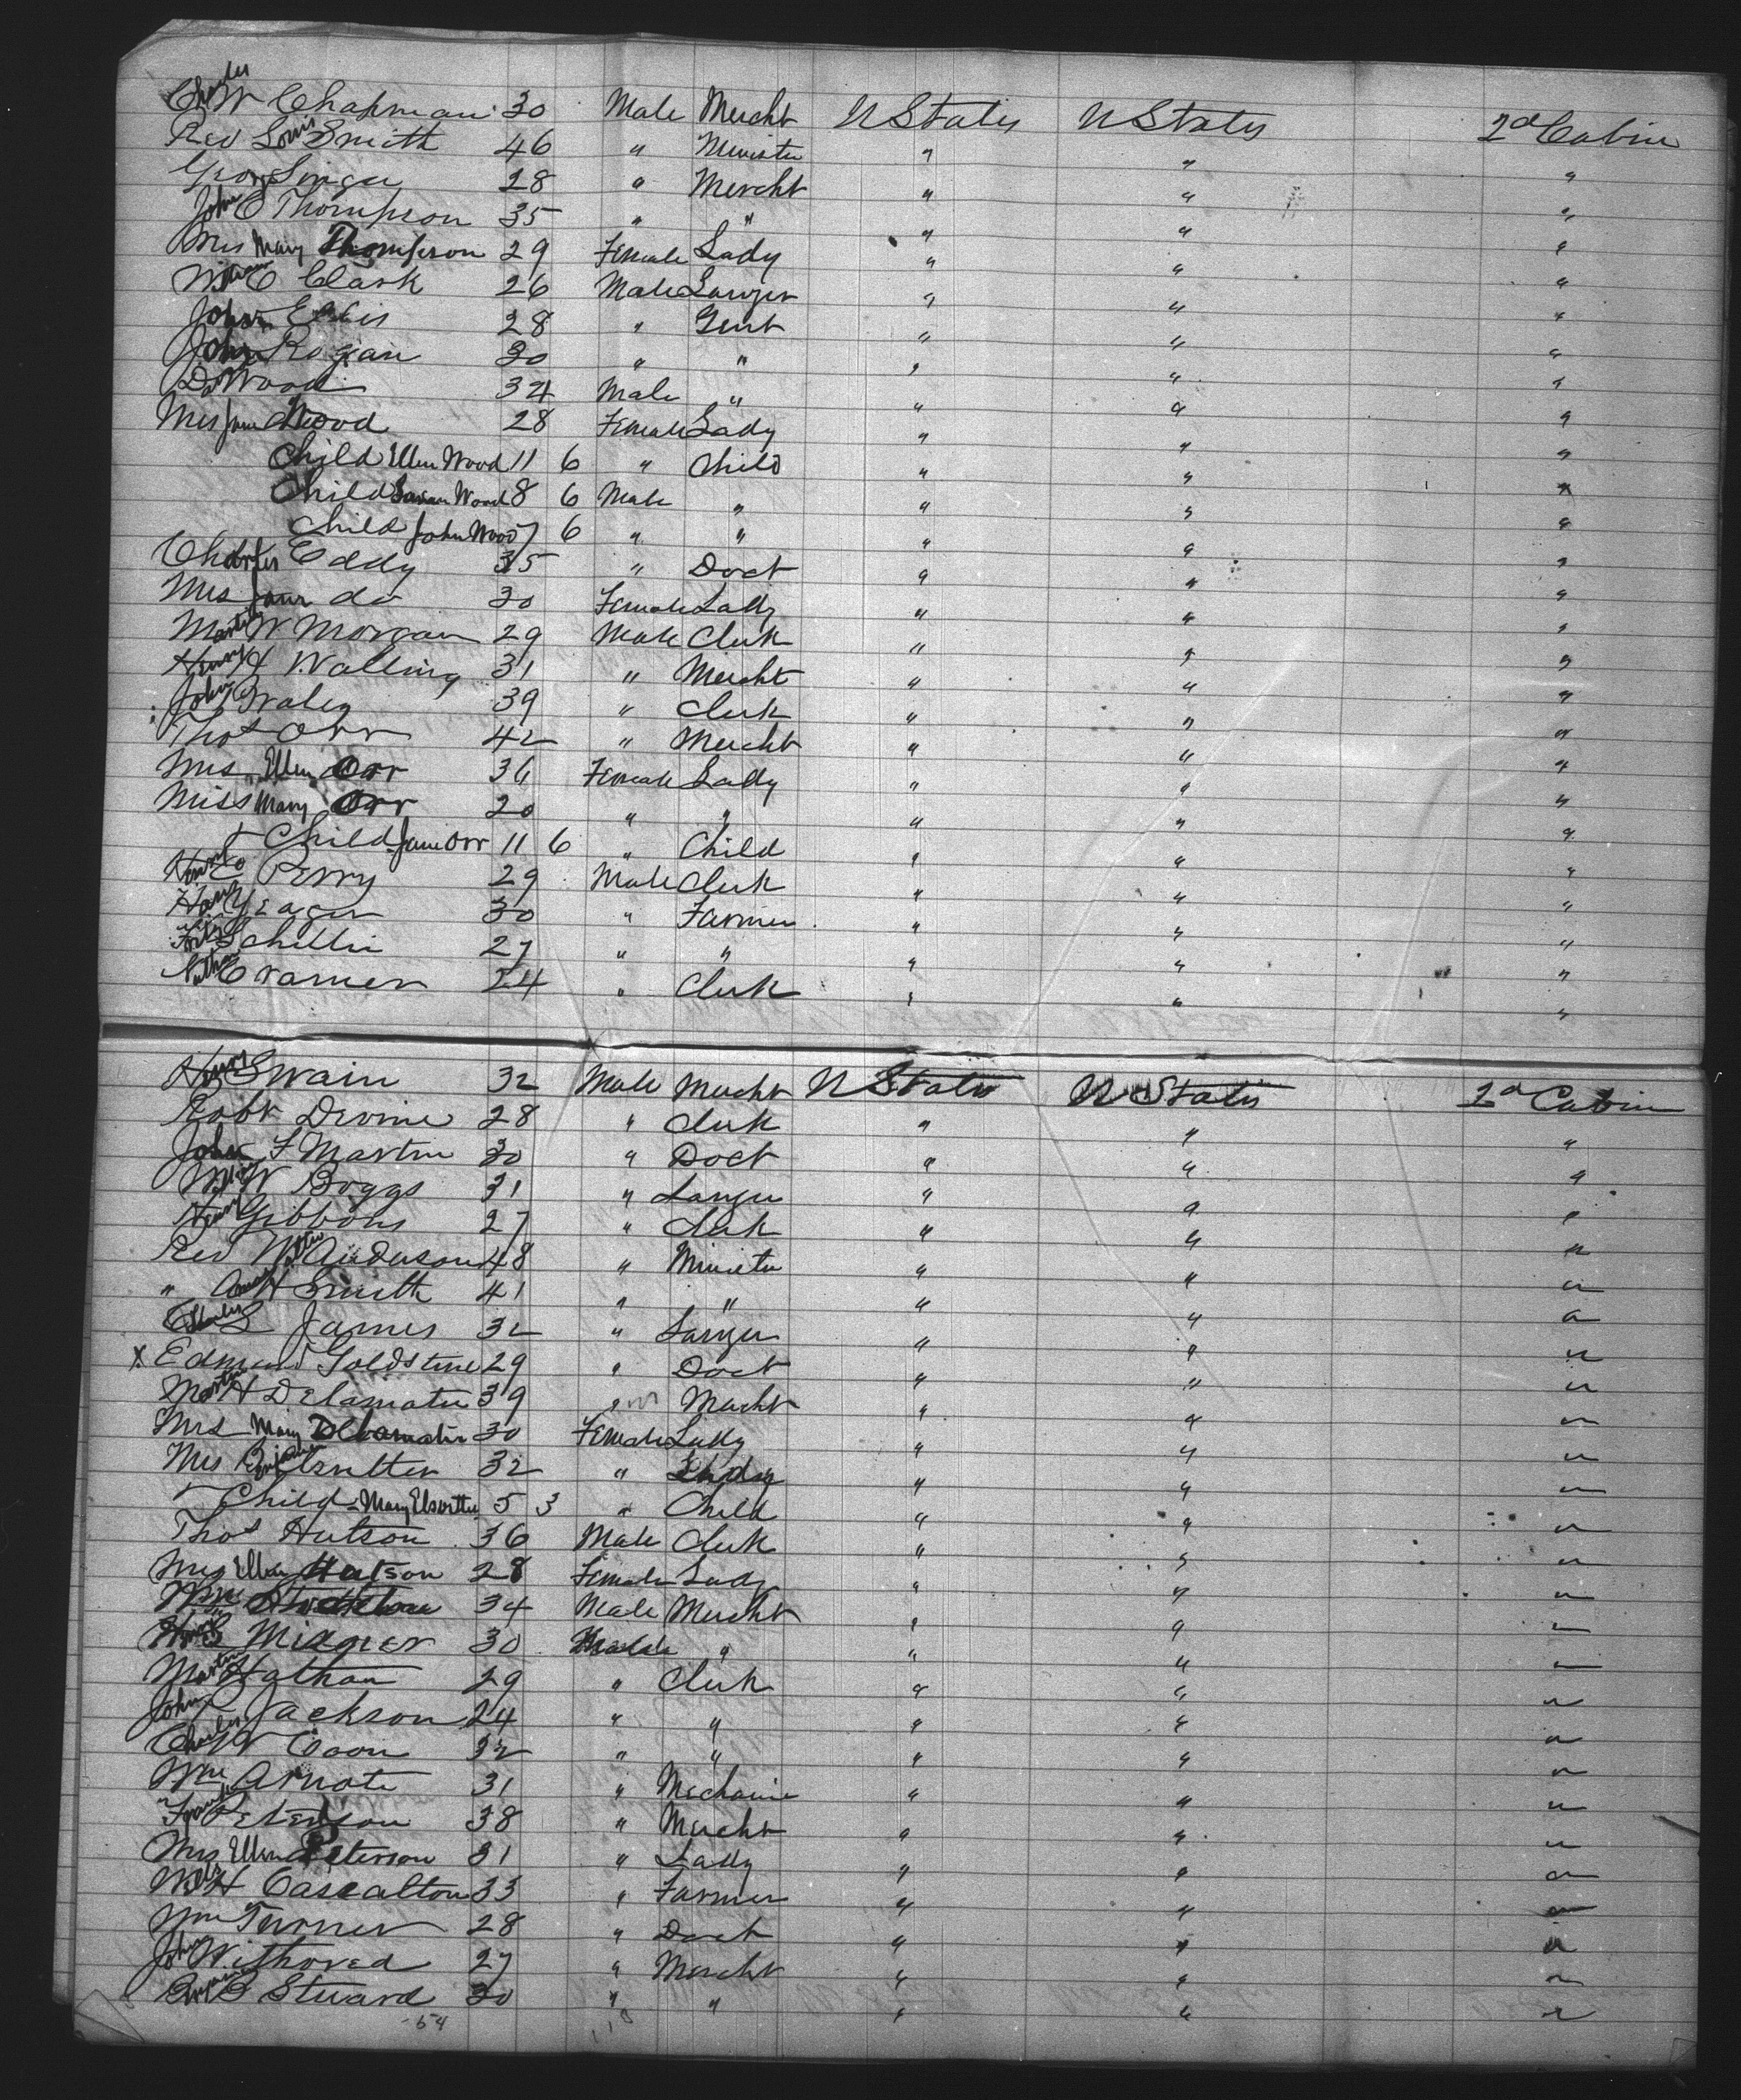 Charles W Chapman 30 Male Mercht U States U States 2d Cabin
Rev Louis Smith 46 " Minister " " "
Geo Singer 28 " Mercht " " "
John C Thompson 35 " " " " "
Mrs Mary Thompson 29 Female Lady " " "
William C Clark 26 Male Lawyer " " "
John Ellis 28 " Gent " " "
John Rogan 30 " " " " "
D Wood 34 Male " " " "
Mrs Jane Wood 28 Female Lady " " "
Child Ellen Wood 11 6 " Child " " "
Child Wood 8 6 Male " " " "
Child John Wood 7 6 " " " " "
Charles Eddy 35 " Doct " " "
Mrs Jane do 30 Female Lady " " "
Martin W Morgan 29 Male Clerk " " "
Henry H Walling 31 " Mercht " " "
John Braley 39 " Clerk " " "
Thos Orr 42 " Mercht " " "
Mrs Ellen Orr 36 Female Lady " " "
Miss Mary Orr 20 " " " " "
+ Child Jane Orr 11 6 " Child " " "
Henry C Perry 29 Male Clerk " " "
Harry Yeager 30 " Farmer " " "
Schellin 27 " " " " "
Nathan Cramer 24 " Clerk " " "
Henry Swain 32 Male Mercht U States U States 2d Cabin
Robt Devine 28 " Clerk " " "
John F Martin 30 " Doct " " "
William W Boggs 31 " Lawyer " " "
Henry Gibbons 27 " Clerk " " "
Rev Walter Anderson 48 " Minister " " "
" Amos H Smith 41 " " " " "
Charles L James 32 " Lawyer " " "
x Edmund Goldstine 29 " Doct " " "
Martin H Delamater 39 " Mercht " " "
Mrs Mary Delamater 30 Female Lady " " "
Mrs 32 " Lady " " "
" Child Mary 5 3 " Child " " "
Thos Hutson 36 Male Clerk " " "
Mrs Ellen Hutson 28 Female Lady " " "
Wm Stockton 34 Male Mercht " " "
Migner 30 Male " " " "
Martin Hathan 29 " Clerk " " "
John Jackson 24 " " " " "
Charles W Coon 32 " " " " "
Wm Arnote 31 " Mechanic " " "
Frank Peterson 38 " Mercht " " "
Mrs Ellen Peterson 31 " Lady " " "
H Cascalton 33 " Farmer " " "
Wm Turner 28 " Doct " " "
John Withored 27 " Mercht " " "
Benjamin B Stuard 30 " " " " "
54 110